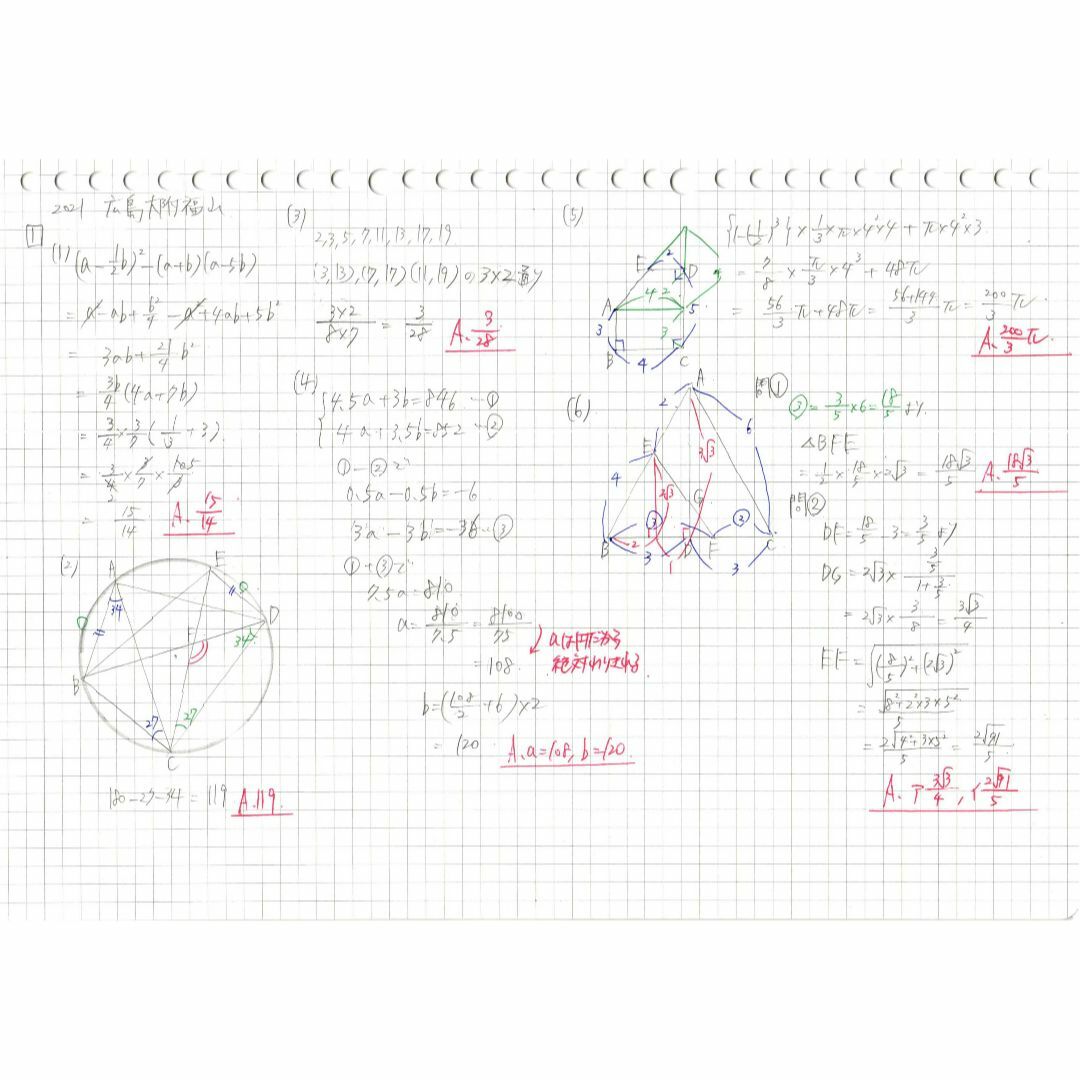 2021 広島大附福山
1
(1) (a-1/2b)²-(a+b)(a-5b)
= a²-ab+b²/4-a²+4ab+5b²
= 3ab+21/4b²
= 3b/4(4a+7b)
= 3/4×3/7(1/3+3)
15/14
A. 15/14
(2)
A
E
D
B
C
F
34
34
27
27
180-27-34=119 A.119.
(3)
2,3,5,7,11,13,17,19
(3,13),(7,17)(11,19)の3×2通り
3×2/8×7 = 3/28 A. 3/28
(4)
4.5a+3b=846 …①
4a+3.5b=852 …②
①-②で
0.5a-0.5b=-6
3a-3b=-36…③
①+③で
7.5a=810
a=810/7.5=8100/75
=108.
aは自然数だから
絶対わりきれる
b=(108/2+6)×2
=120
A. a=108, b=120
(5)
E
2
D
A
4
2
5
3
3
B
4
C
{1-(1/2)³}×1/3×π×4²×4+π×4²×3.
= 7/8×π/3×4³+48π
= 56/3π+48π=56+144/3π=200/3π.
A. 200/3π.
(6)
A
2
6
E
3√3
4
2√3
G
③
②
B
2
D
F
C
3
1
3
問①
③=3/5×6=18/5より.
△BFE
=1/2×18/5×2√3=18√3/5 A. 18√3/5
問②
DF=18/5-3=3/5より
DG=2√3×3/5/1+3/5
=2√3×3/8=3√3/4
EF=√(8/5)²+(2√3)²
=√8²+2²×3×5²/5
=2√4²+3×5²/5=2√91/5
A. ア 3√3/4, イ 2√91/5